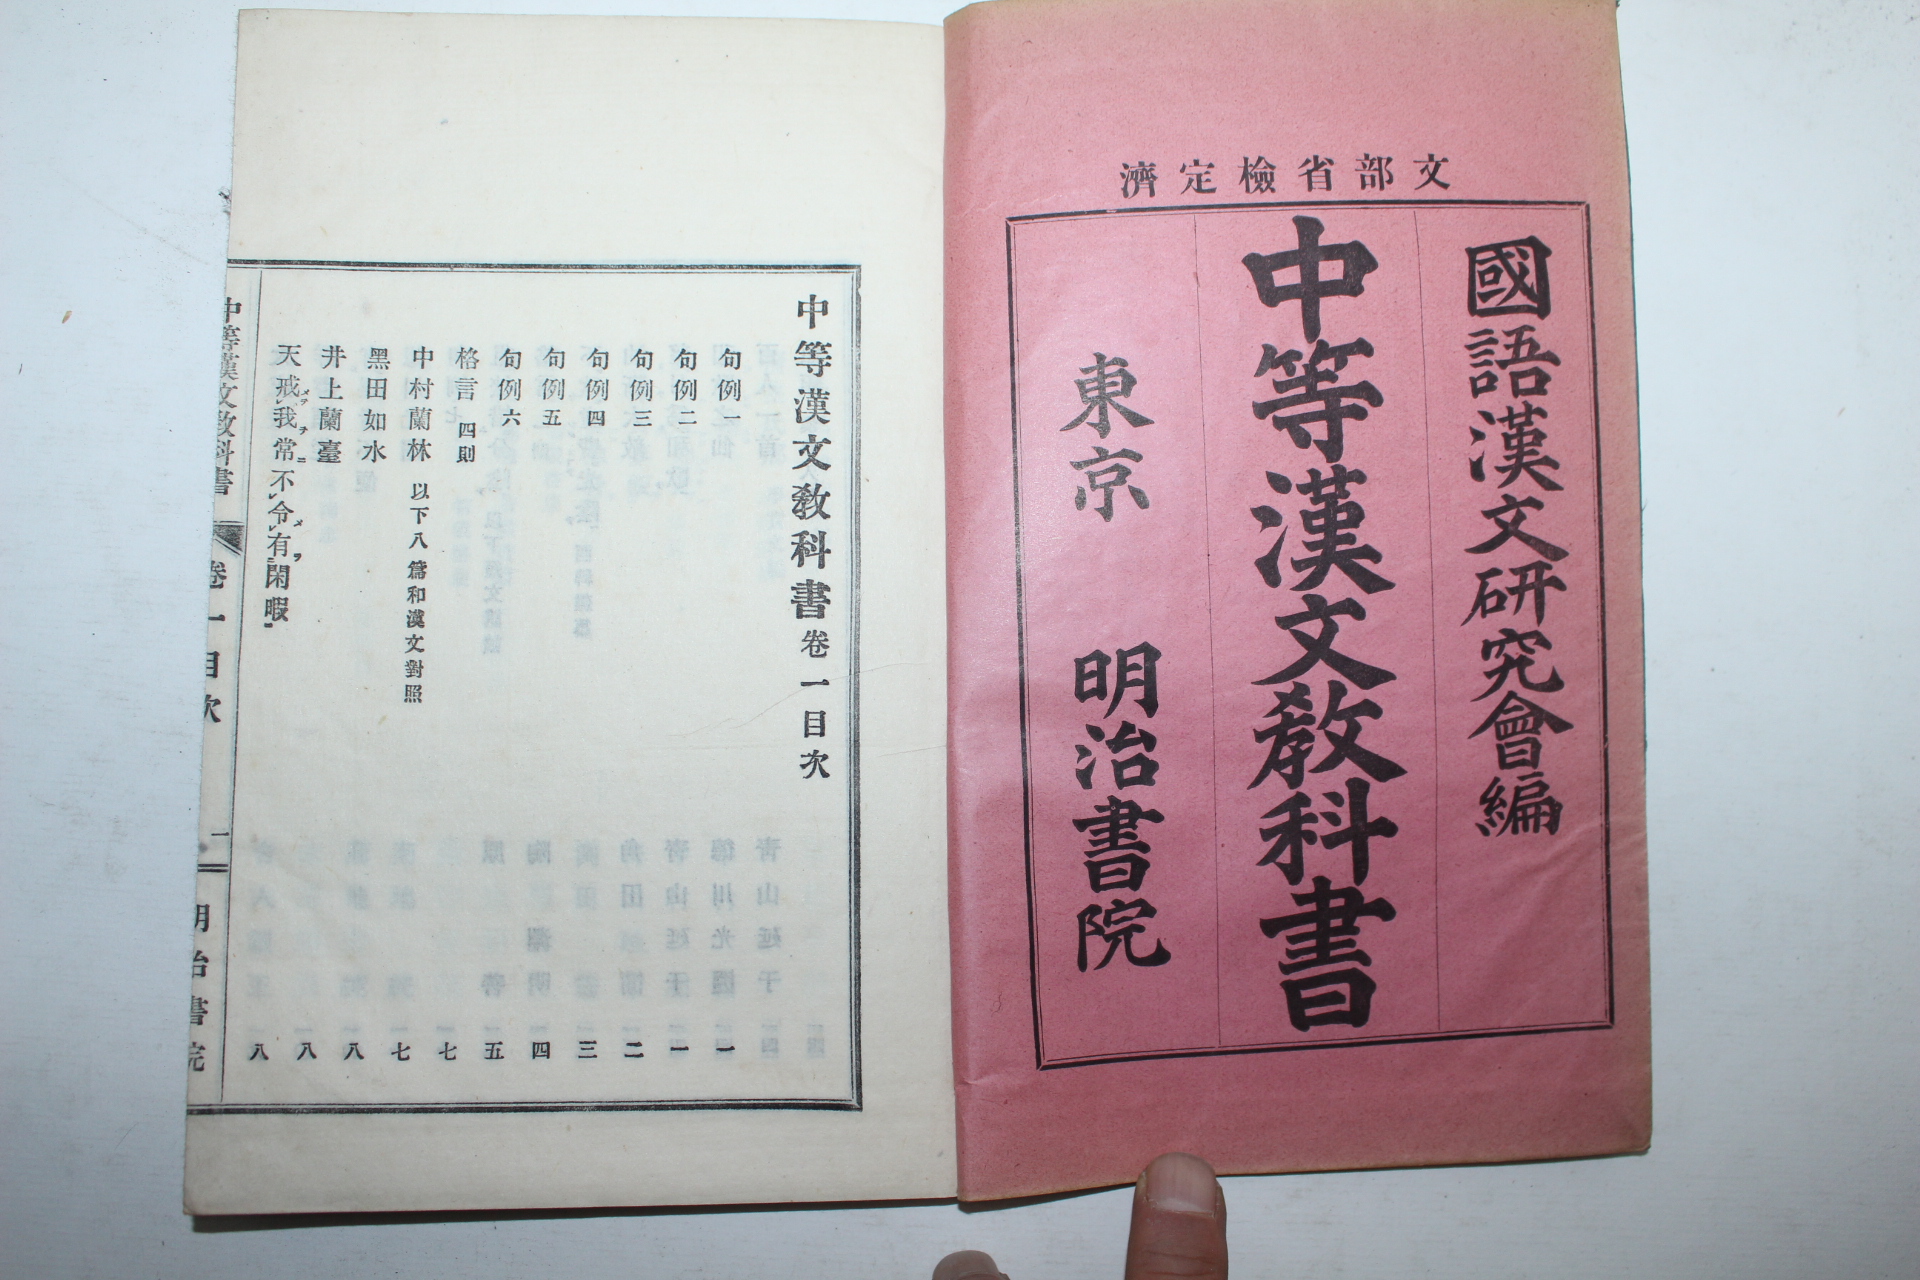 文部省檢定濟
國語漢文研究會編
中等漢文敎科書
東京　明治書院
中等漢文敎科書卷一目次
句例一　一
句例二　一
句例三　二
句例四　三
句例五　四
句例六　五
格言　四則　七
中村蘭林　以下八篇和漢文對照　七
黑田如水　八
井上蘭臺　八
天戒我常不令有閑暇　八
中等漢文敎科書　卷一目次　一　明治書院